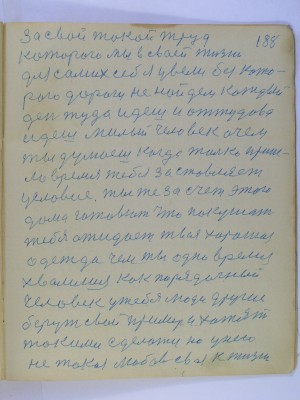 За свой такой труд 188
которого мы в своей жизни
для самих себя увели без кото-
рого дороги не найдем каждый
ден туда идеш и оттудова
идеш милый человек о чем
ты думаеш когда толко приш-
ло время тебя заставляет
условие. ты же за счет этого
дома готовиш что покушат
тебя ожидает твая хорошая
одежда чем ты одно время
хвалился как порядочный
человек у тебя люди другие
берут свой пример и хотят
такими сделатся но у него
не такая любов своя к жизни